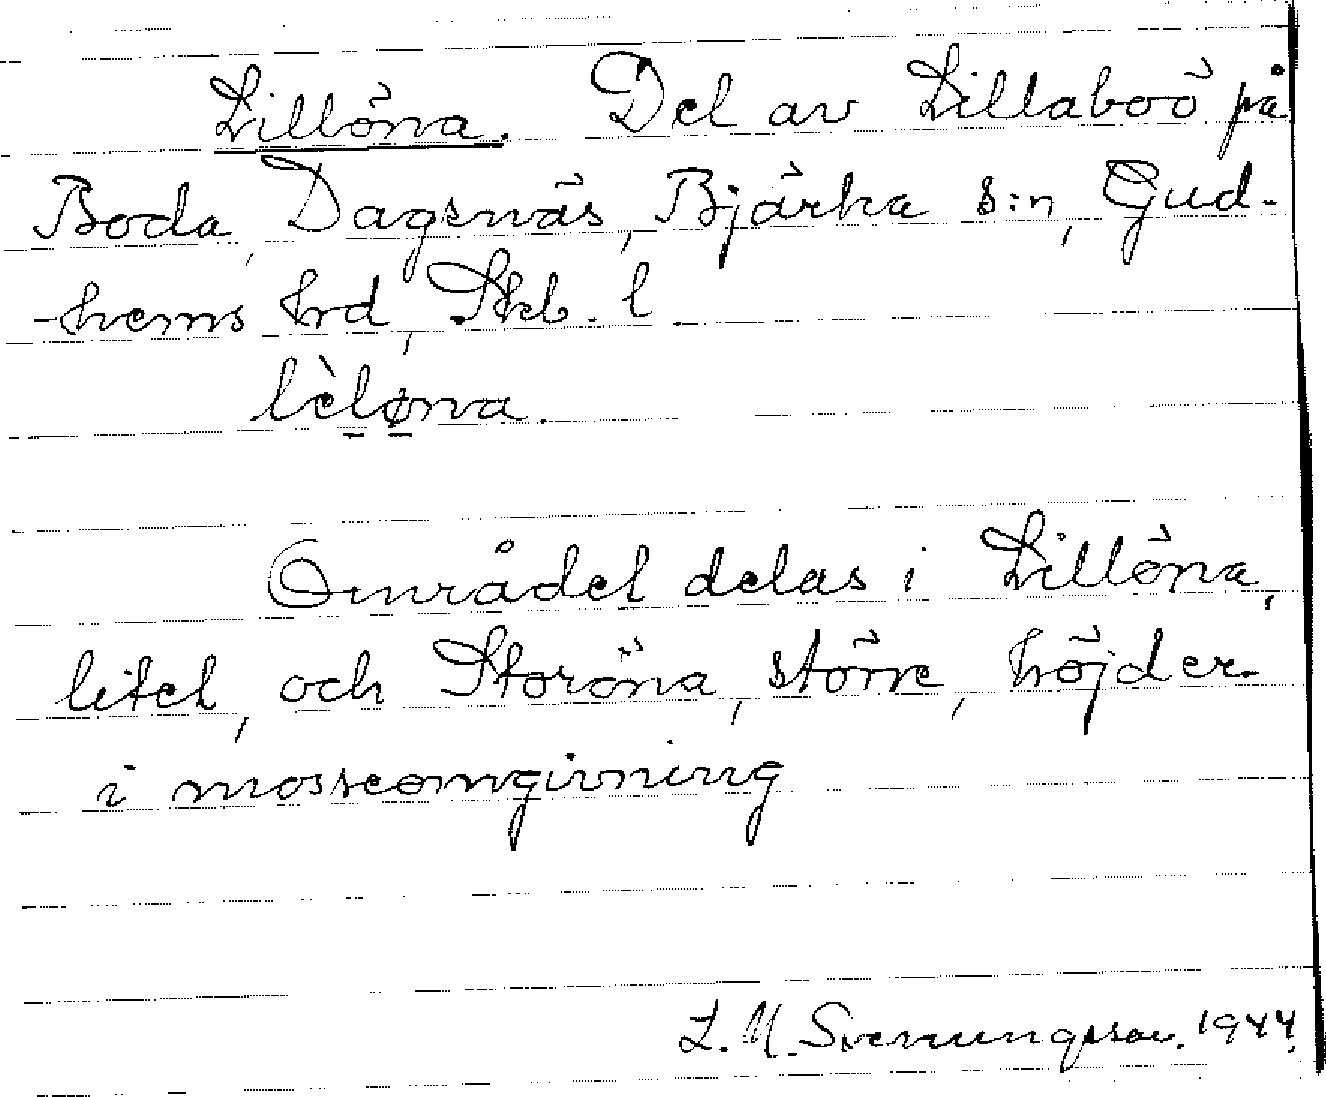 Lillöna. Del av Lillaboö på
Boda, Dagsnäs, Bjärka s:n, Gud-
-hems hrd, Skb. l
lèløna.
Området delas i Lillöna,
litet, och Storöna, större, höjder
i mosseomgivning
L. M. Svenungsson. 1944.